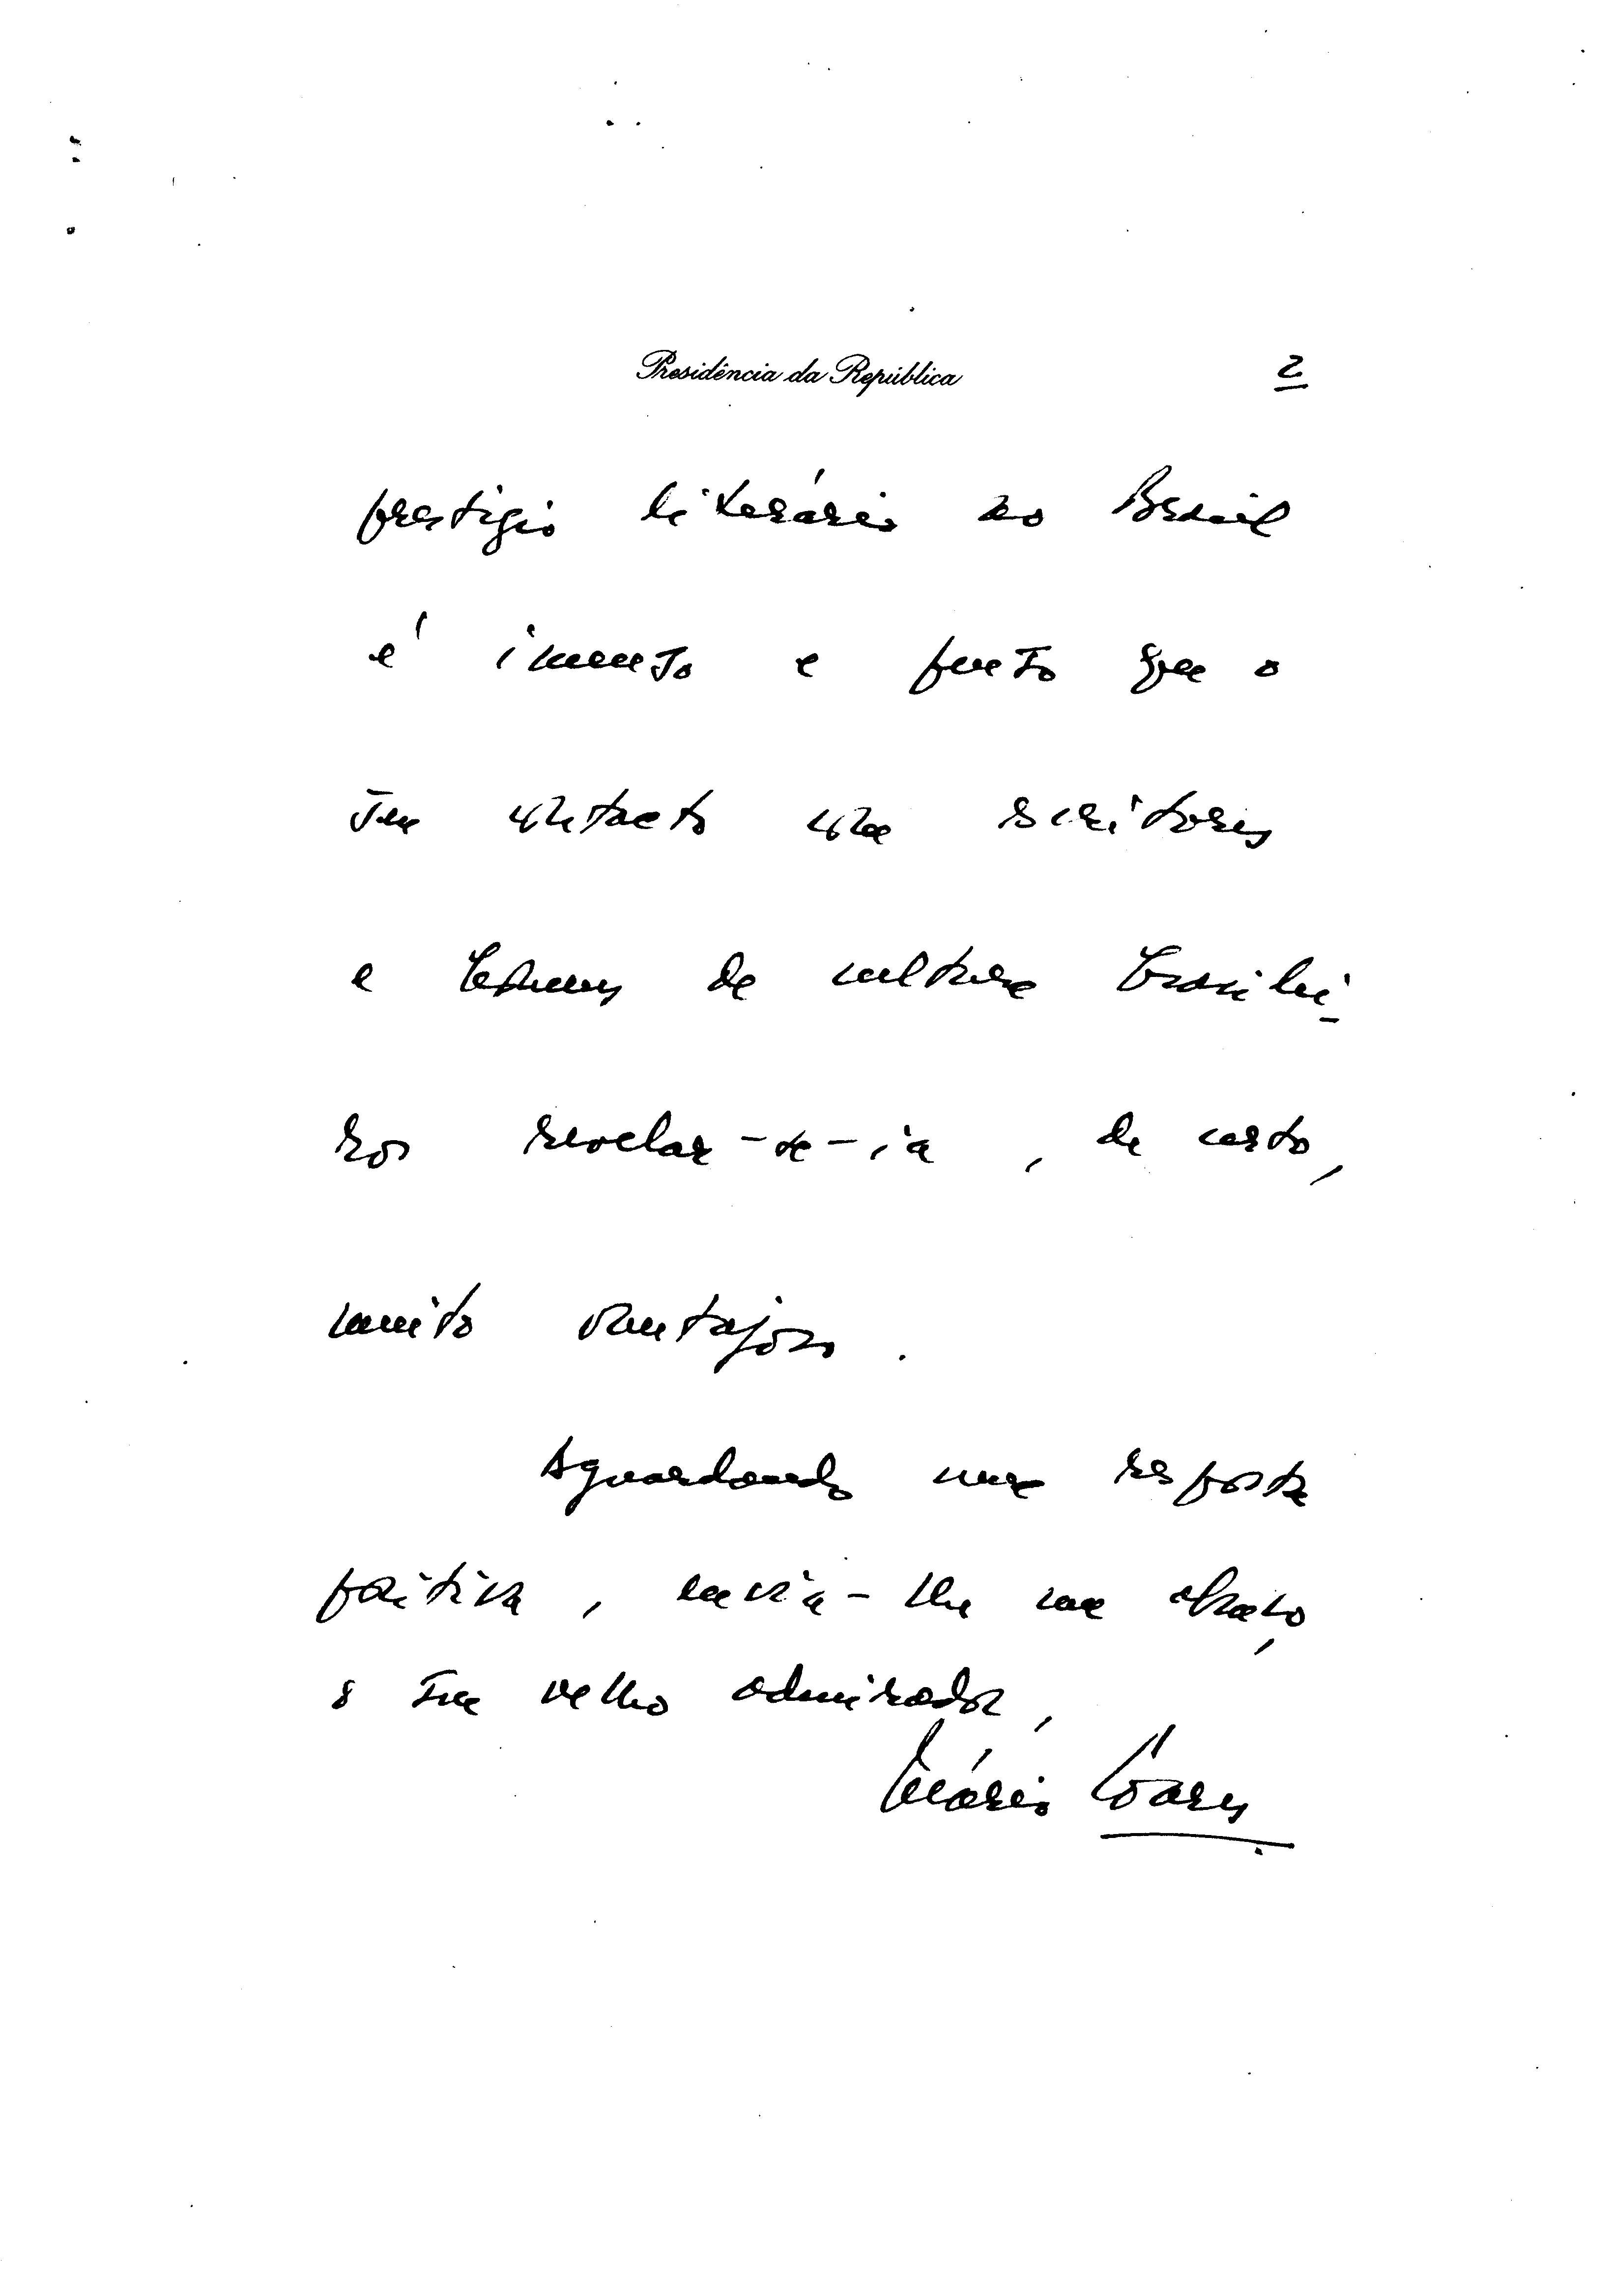 Presidência da República
2
prestígio literário no Brasil
é imenso e penso que o
seu contacto com escritores
e homens de cultura brasilei-
ros revelar-se-ia, de certo,
muito vantajoso.
Aguardando uma resposta
positiva, envia-lhe um abraço,
o seu velho admirador,
Mário Soares